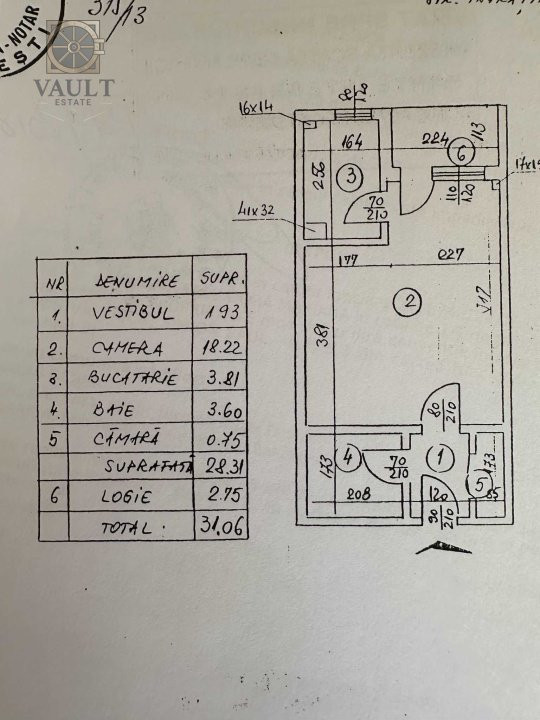 VAULT
ESTATE
-NOTAR
EȘTI
NR DENUMIRE SUPR.
1. VESTIBUL 1 93
2. CAMERA 18.22
3. BUCATARIE 3.81
4. BAIE 3.60
5 CĂMARĂ 0.75
SUPRATATĂ 28.31
6 LOGIE 2.75
TOTAL: 31.06
16x14
80
120
164
224
113
6
17x1
256
3
70
210
110
120
41x32
177
2
381
80
210
173
4
70
210
1
173
5
208
120
65
90
210